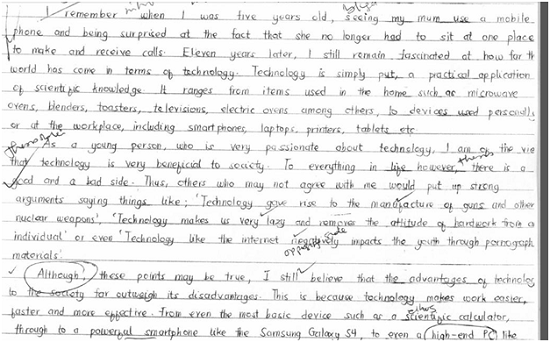 I remember when I was five years old, seeing my mum use a mobile
phone and being surprised at the fact that she no longer had to sit at one place
to make and receive calls. Eleven years later, I still remain fascinated at how far th
world has come in terms of technology. Technology is simply put, a practical application
of scientific knowledge. It ranges from items used in the home such as microwave
ovens, blenders, toasters, televisions, electric ovens among others, to devices used personally
or at the workplace, including smart phones, laptops, printers, tablets etc
As a young person, who is very passionate about technology, I am of the vie
that technology is very beneficial to society. To everything in life however, there is a
good and a bad side. Thus, others who may not agree with me would put up strong
arguments saying things like; 'Technology gave rise to the manufacture of guns and other
nuclear weapons', 'Technology makes us very lazy and removes the attitude of hardwork from a
individual' or even 'Technology like the internet negatively impacts the youth through pornograph
materials.
Although, these points may be true, I still believe that the advantages of technolog
to the society far outweigh its disadvantages. This is because technology makes work easier,
faster and more effective. From even the most basic device such as a scientific calculator,
through to a powerful smartphone like the Samsung Galaxy S4, to even a high-end PC like